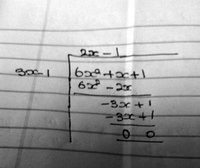 2x - 1
3x-1 6x² + x + 1
6x² - 2x
-3x + 1
-3x + 1
0 0